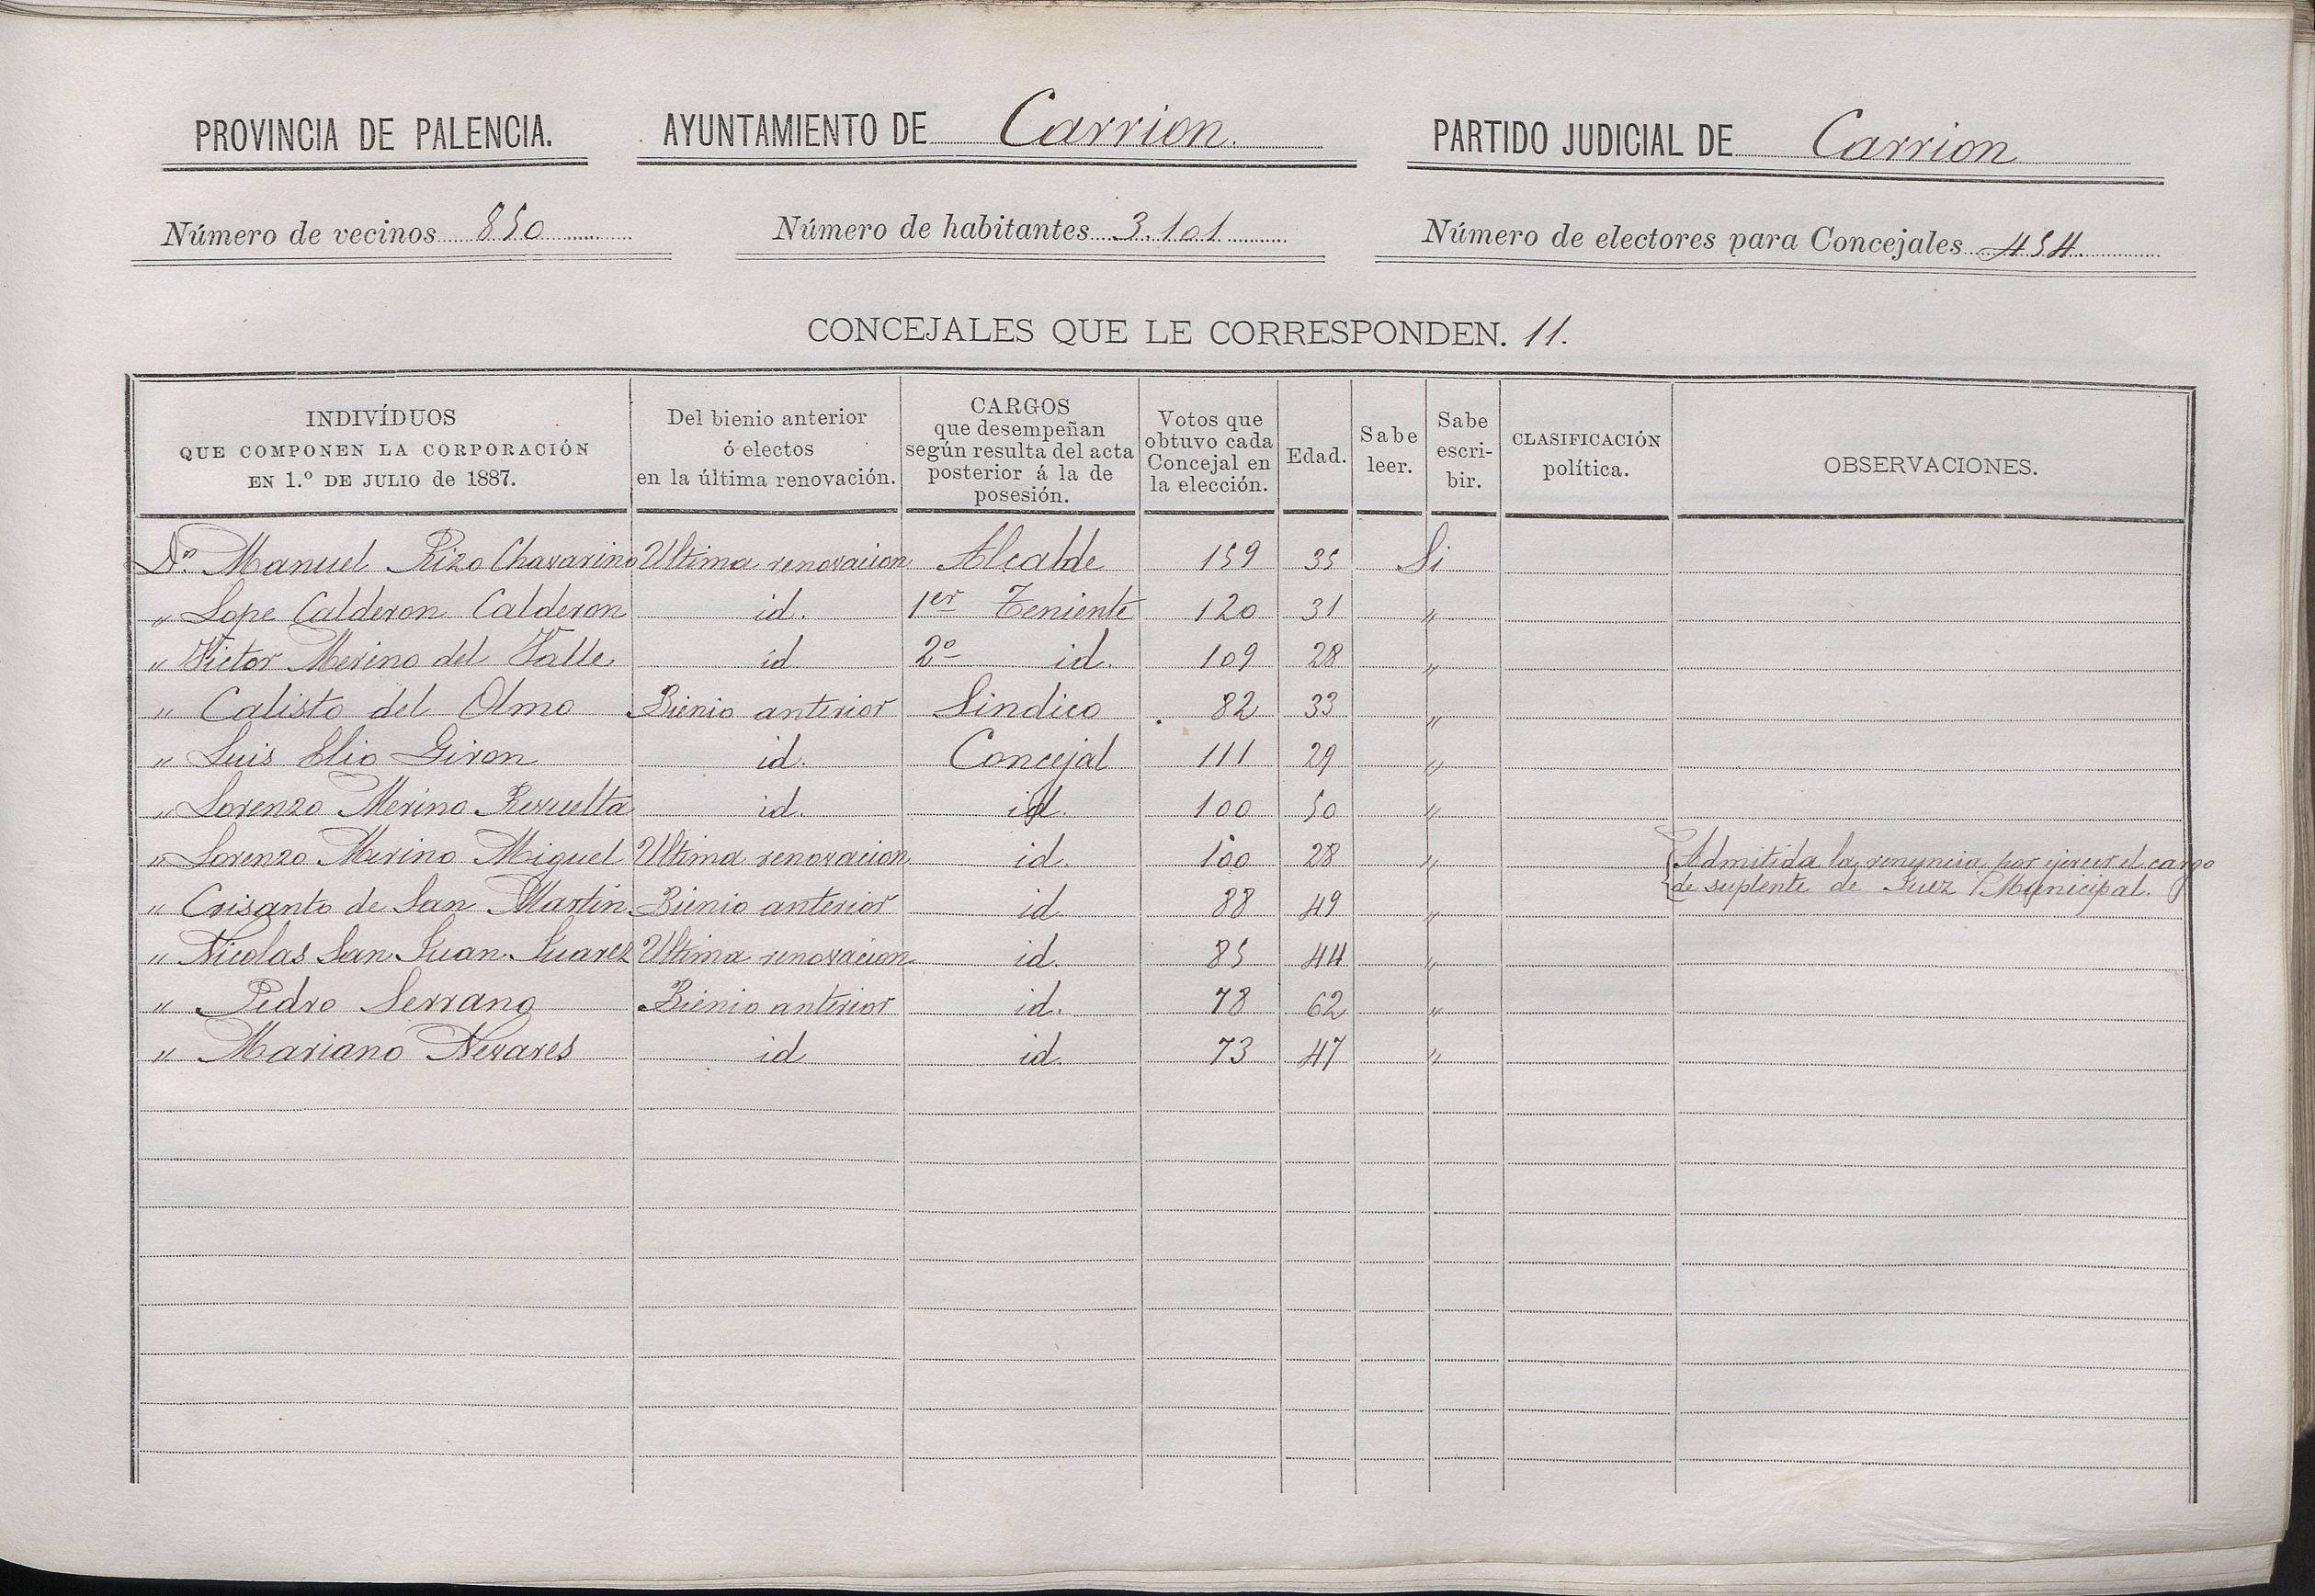 PROVINCIA DE PALENCIA. AYUNTAMIENTO DE Carrion. PARTIDO JUDICIAL DE Carrion
Número de vecinos 850 Número de habitantes 3.101 Número de electores para Concejales 454.
CONCEJALES QUE LE CORRESPONDEN. 11.
INDIVÍDUOS
QUE COMPONEN LA CORPORACIÓN
EN 1.º DE JULIO de 1887.
Del bienio anterior
ó electos
en la última renovación.
CARGOS
que desempeñan
según resulta del acta
posterior á la de
posesión.
Votos que
obtuvo cada
Concejal en
la elección.
Edad.
Sabe
leer.
Sabe
escri-
bir.
CLASIFICACIÓN
política.
OBSERVACIONES.
Dn. Manuel Rizo Chavarino Ultima renovacion Alcalde 159 35 Si
" Lope Calderon Calderon id. 1er Teniente 120 31 "
" Victor Merino del Valle id 2o id. 109 28 "
" Calisto del Olmo Bienio anterior Sindico 82 33 "
" Luis Elio Giron id. Concejal 111 29 "
" Lorenzo Merino Revuelta id. id. 100 50 "
" Lorenzo Merino Miguel Ultima renovacion id. 100 28 " Admitida la renuncia por ejercer el cargo
de suplente de Juez Municipal.
" Crisanto de San Martin Bienio anterior id. 88 49 "
" Nicolas San Juan Suarez Ultima renovacion id. 85 44 "
" Pedro Serrano Bienio anterior id. 78 62 "
" Mariano Nevares id id. 73 47 "